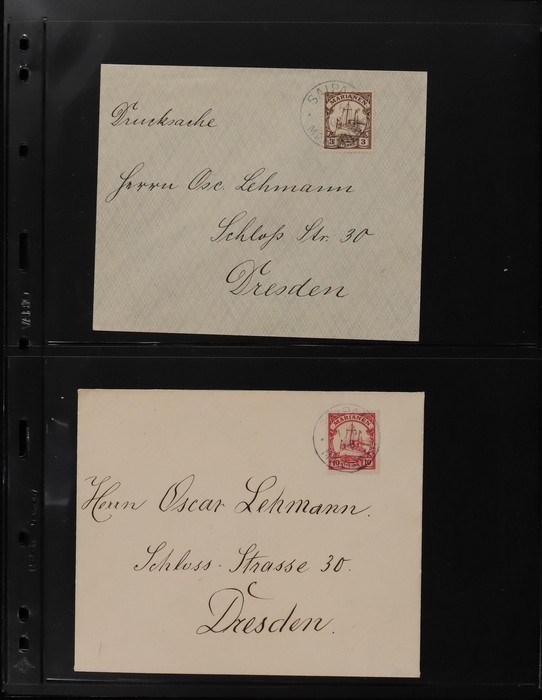 Drucksache
SAIPAN
MARIANEN
3 3
Herrn Osc. Lehmann
Schloß Str. 30
Dresden
MARIANEN
10 10
Herrn Oscar Lehmann.
Schloss-Strasse 30.
Dresden.